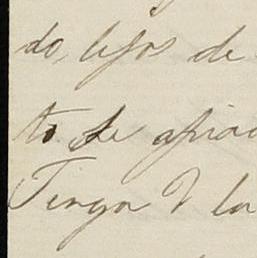 do, lejos de
to se apia
Tenga V la